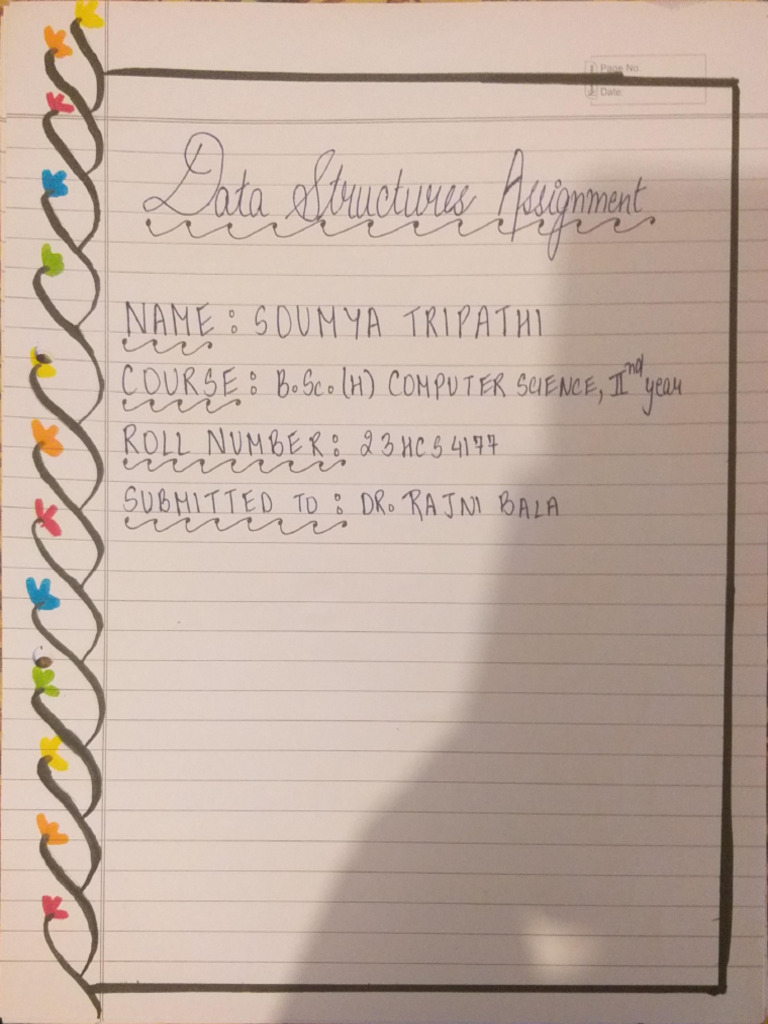 Page No
Date:
Data Structures Assignment
NAME : SOUMYA TRIPATHI
COURSE : B.Sc. (H) COMPUTER SCIENCE, IInd year
ROLL NUMBER : 23HCS4177
SUBMITTED TO : DR. RAJNI BALA